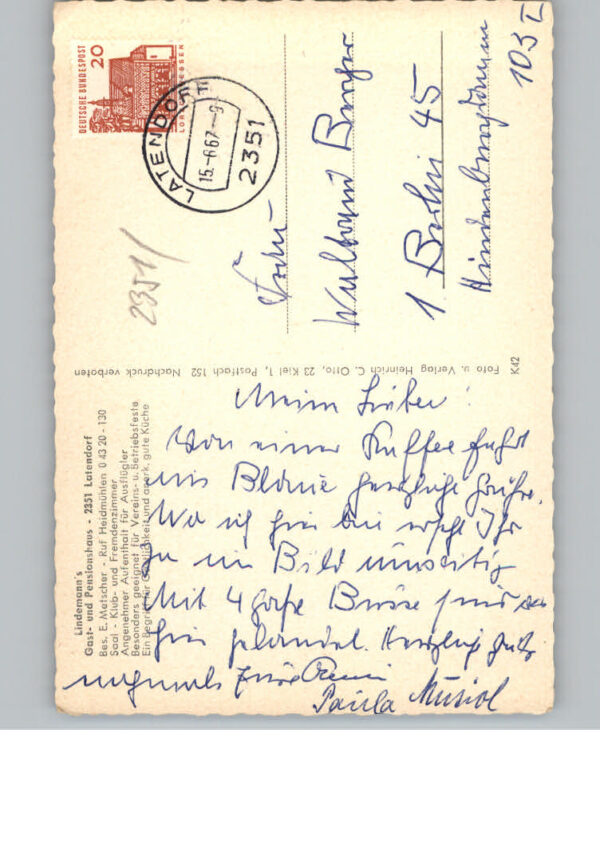 DEUTSCHE BUNDESPOST
20
LATENDORF
15.-6.67.-9
2351
2351/
Frau
1 Berlin 45
Hindenburgdamm
103 I
Foto u. Verlag Heinrich C. Otto, 23 Kiel 1, Postfach 152 Nachdruck verboten
K42
Lindemann's
Gast- und Pensionshaus - 2351 Latendorf
Bes. E. Metscher - Ruf Heidmühlen 0 43 20 - 130
Saal - Klub- und Fremdenzimmer
Angenehmer Aufenthalt für Ausflügler
Besonders geeignet für Vereins- u. Betriebsfeste
Ein Begriff für Gastlichkeit und anerk. gute Küche
Meine Lieben!
Von einer Kaffeefahrt
ins Blaue herzliche Grüße.
Wo ich hier bin seht Ihr
ja im Bild
Mit 4 große Busse sind wir
hier gelandet. Herzlich
nochmals Eure
Paula Musiol